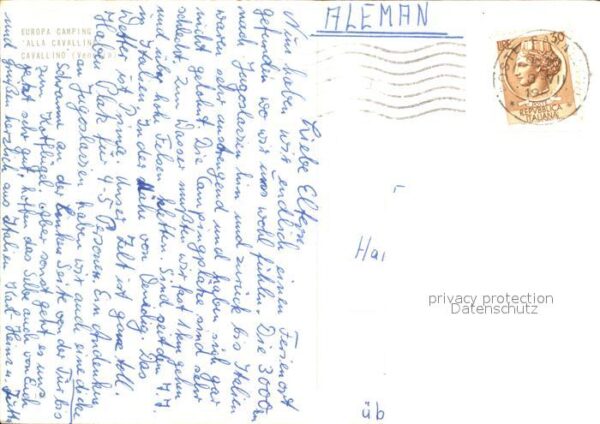 EUROPA CAMPING
"ALLA CAVALLINO"
CAVALLINO (Venezia)
ALEMAN
Liebe Eltern!
Nun haben wir endlich einen Ferienort
gefunden wo wir uns wohl fühlen. Die 3000 km
nach Jugoslawien hin und zurück bis Italien
waren sehr anstrengend und haben sich gar
nicht gelohnt. Die Campingplätze sind sehr
schlecht, zum Wasser mußten wir fast 1 km gehen
und über hohe Felsen klettern. Sind seit dem 7.7.
in Italien in der Nähe von Venedig. Das
Wetter ist Prima. Unser Zelt ist ganz toll.
Haben Platz für 4-5 Personen. Ein Andenken
an Jugoslawien haben wir auch eine dicke
Schramme an der linken Seite von der Tür bis
zum Kotflügel, aber sonst geht es uns
jetzt sehr gut, hoffen das Selbe auch von Euch
und grüßen herzlich aus Italien Karl-Heinz u. Jutta
Hai
üb
REPUBBLICA
ITALIANA
privacy protection
Datenschutz